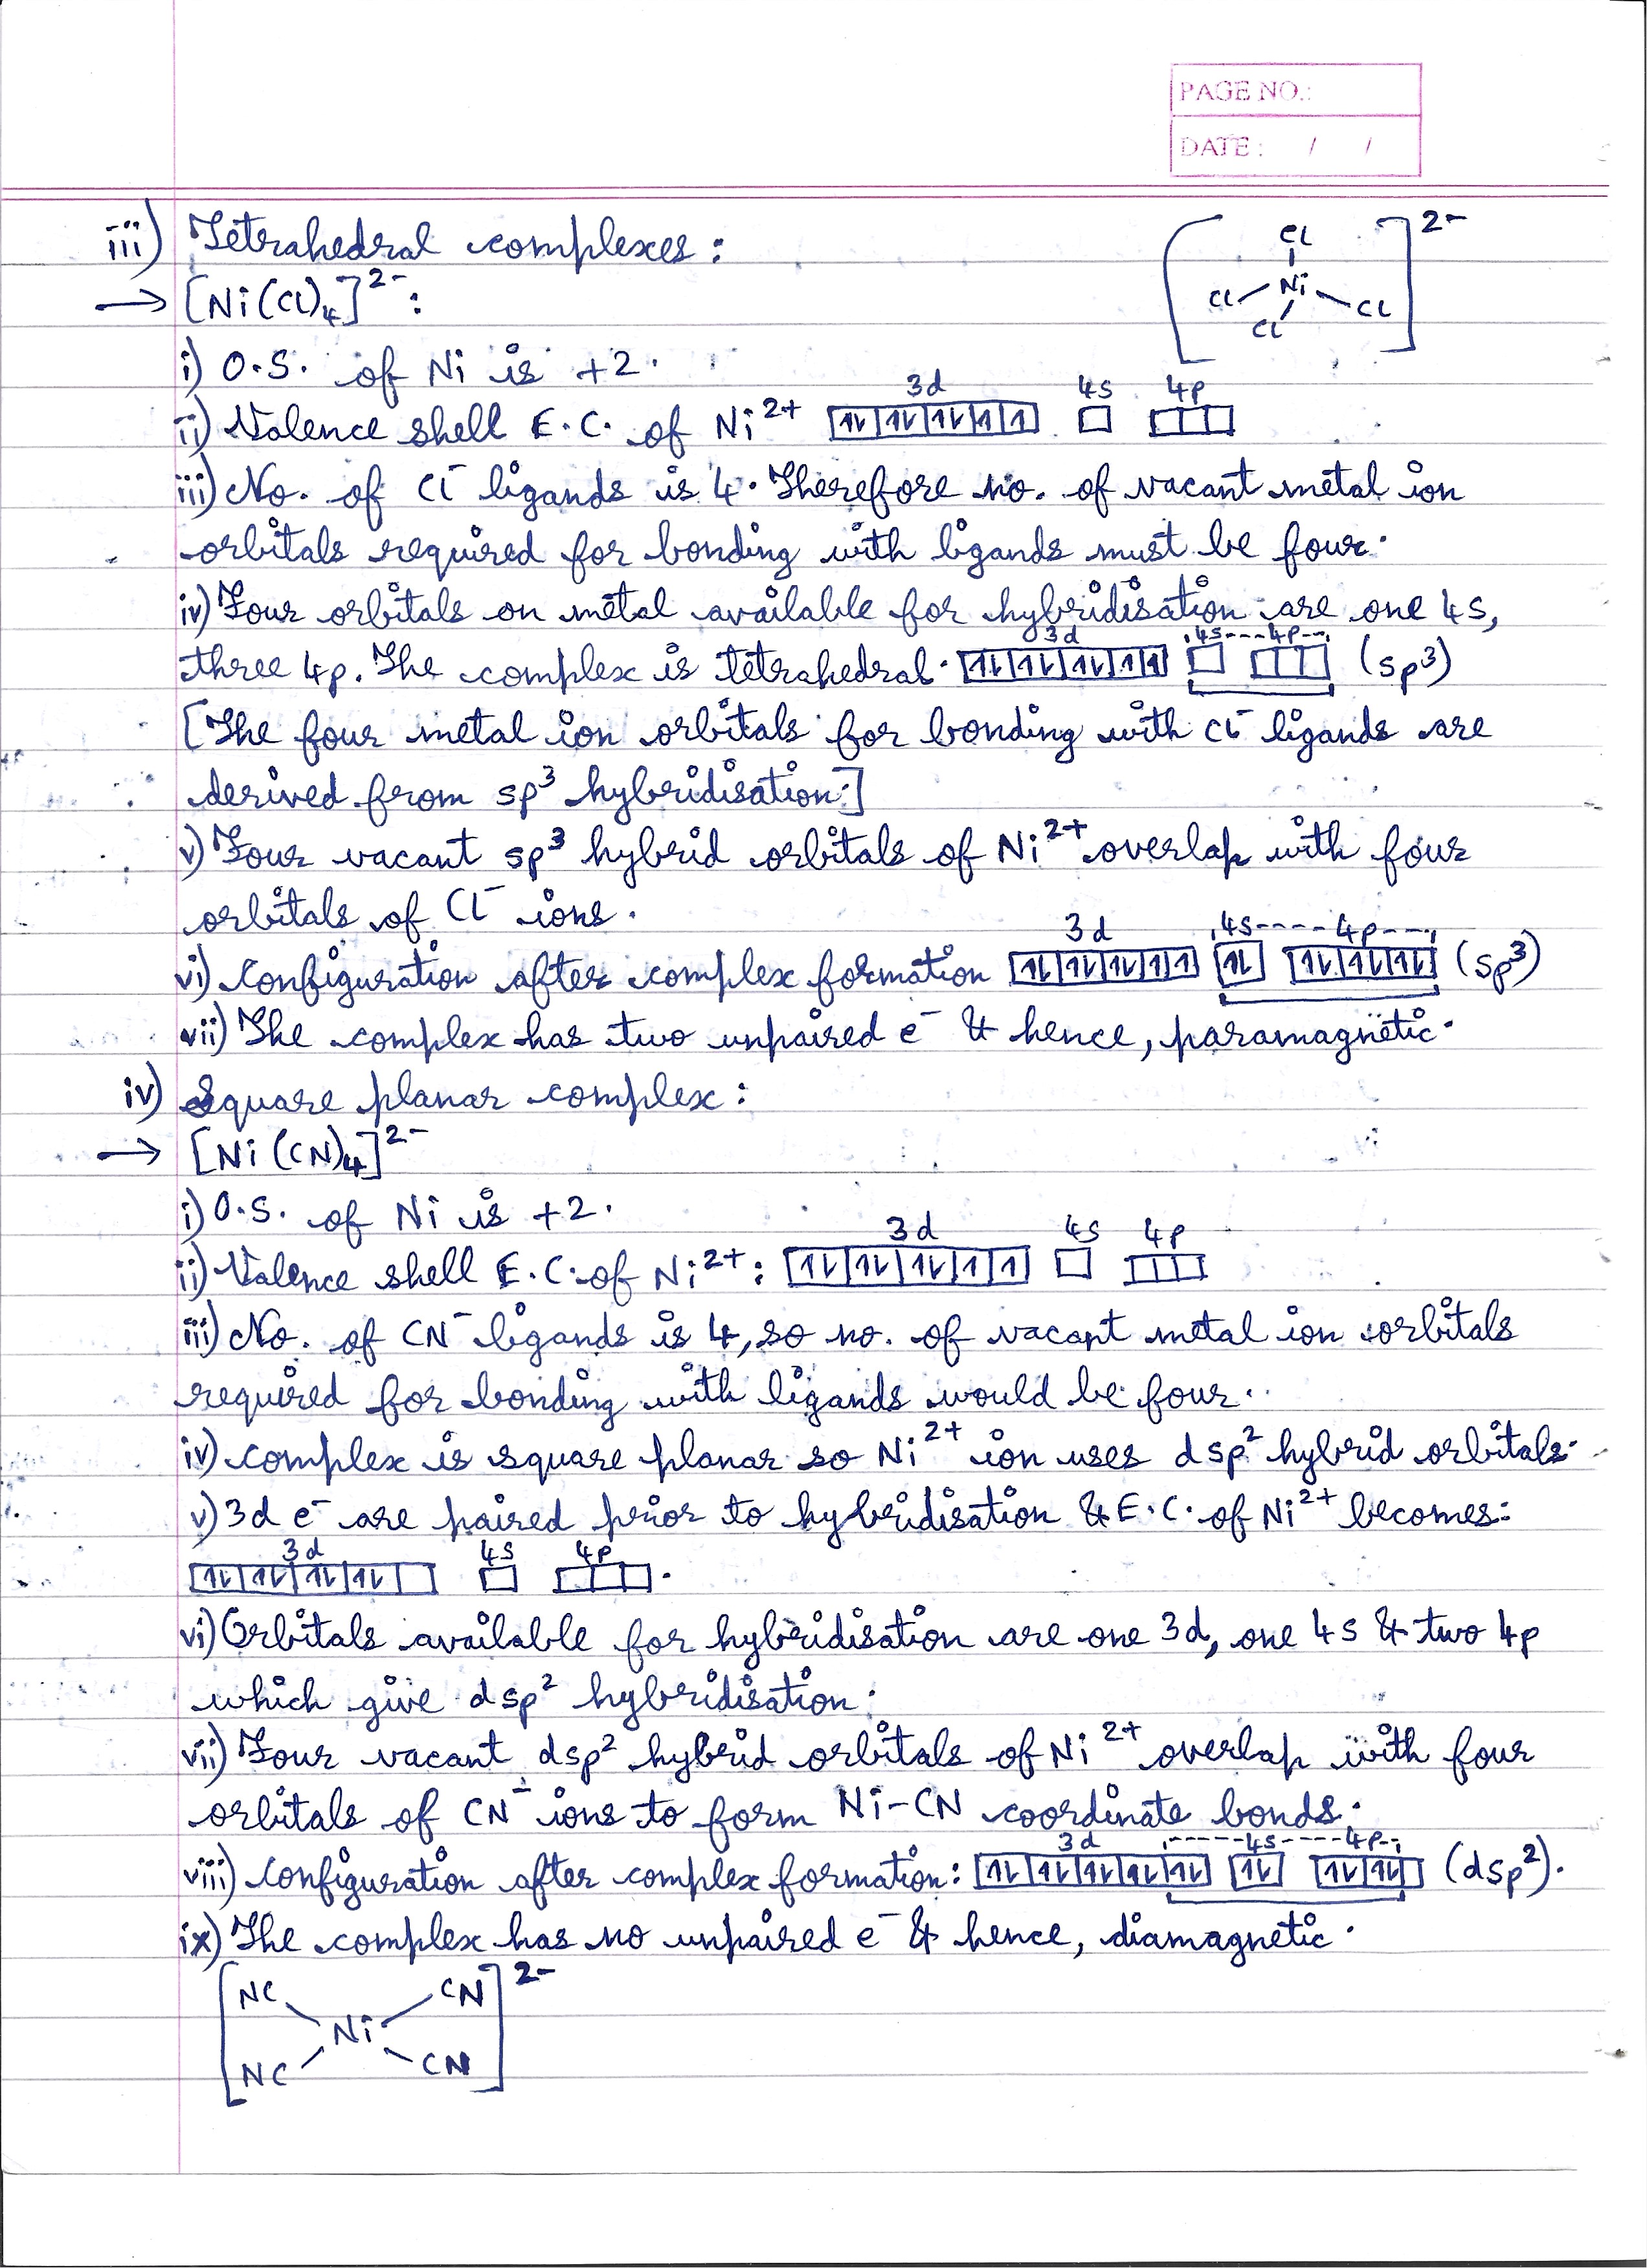 PAGE NO.:
DATE : / /
iii) Tetrahedral complexes:
→ [Ni(Cl)₄]²⁻:
[Cl Ni Cl Cl Cl]²⁻
i) O.S. of Ni is +2.
3d 4s 4p
ii) Valence shell E.C. of Ni²⁺ [1L|1L|1L|1|1] [ ] [ | | ]
iii) No. of Cl⁻ ligands is 4. Therefore no. of vacant metal ion
orbitals required for bonding with ligands must be four.
iv) Four orbitals on metal available for hybridisation are one 4s,
3d 4s---4p--
three 4p. The complex is tetrahedral. [1L|1L|1L|1|1] [ ] [ | | ] (sp³)
[The four metal ion orbitals for bonding with Cl⁻ ligands are
derived from sp³ hybridisation.]
v) Four vacant sp³ hybrid orbitals of Ni²⁺ overlap with four
orbitals of Cl⁻ ions.
3d 4s---- 4p---
vi) Configuration after complex formation [1L|1L|1L|1|1] [1L] [1L|1L|1L] (sp³)
vii) The complex has two unpaired e⁻ & hence, paramagnetic.
iv) Square planar complex:
→ [Ni(CN)₄]²⁻
i) O.S. of Ni is +2.
3d 4s 4p
ii) Valence shell E.C. of Ni²⁺: [1L|1L|1L|1|1] [ ] [ | | ]
iii) No. of CN⁻ ligands is 4, so no. of vacant metal ion orbitals
required for bonding with ligands would be four.
iv) Complex is square planar so Ni²⁺ ion uses dsp² hybrid orbitals.
v) 3d e⁻ are paired prior to hybridisation & E.C. of Ni²⁺ becomes:
3d 4s 4p
[1L|1L|1L|1L| ] [ ] [ | | ].
vi) Orbitals available for hybridisation are one 3d, one 4s & two 4p
which give dsp² hybridisation.
vii) Four vacant dsp² hybrid orbitals of Ni²⁺ overlap with four
orbitals of CN⁻ ions to form Ni-CN coordinate bonds.
3d -----4s----4p--
viii) Configuration after complex formation: [1L|1L|1L|1L|1L] [1L] [1L|1L| ] (dsp²).
ix) The complex has no unpaired e⁻ & hence, diamagnetic.
[NC CN
Ni
NC CN]²⁻